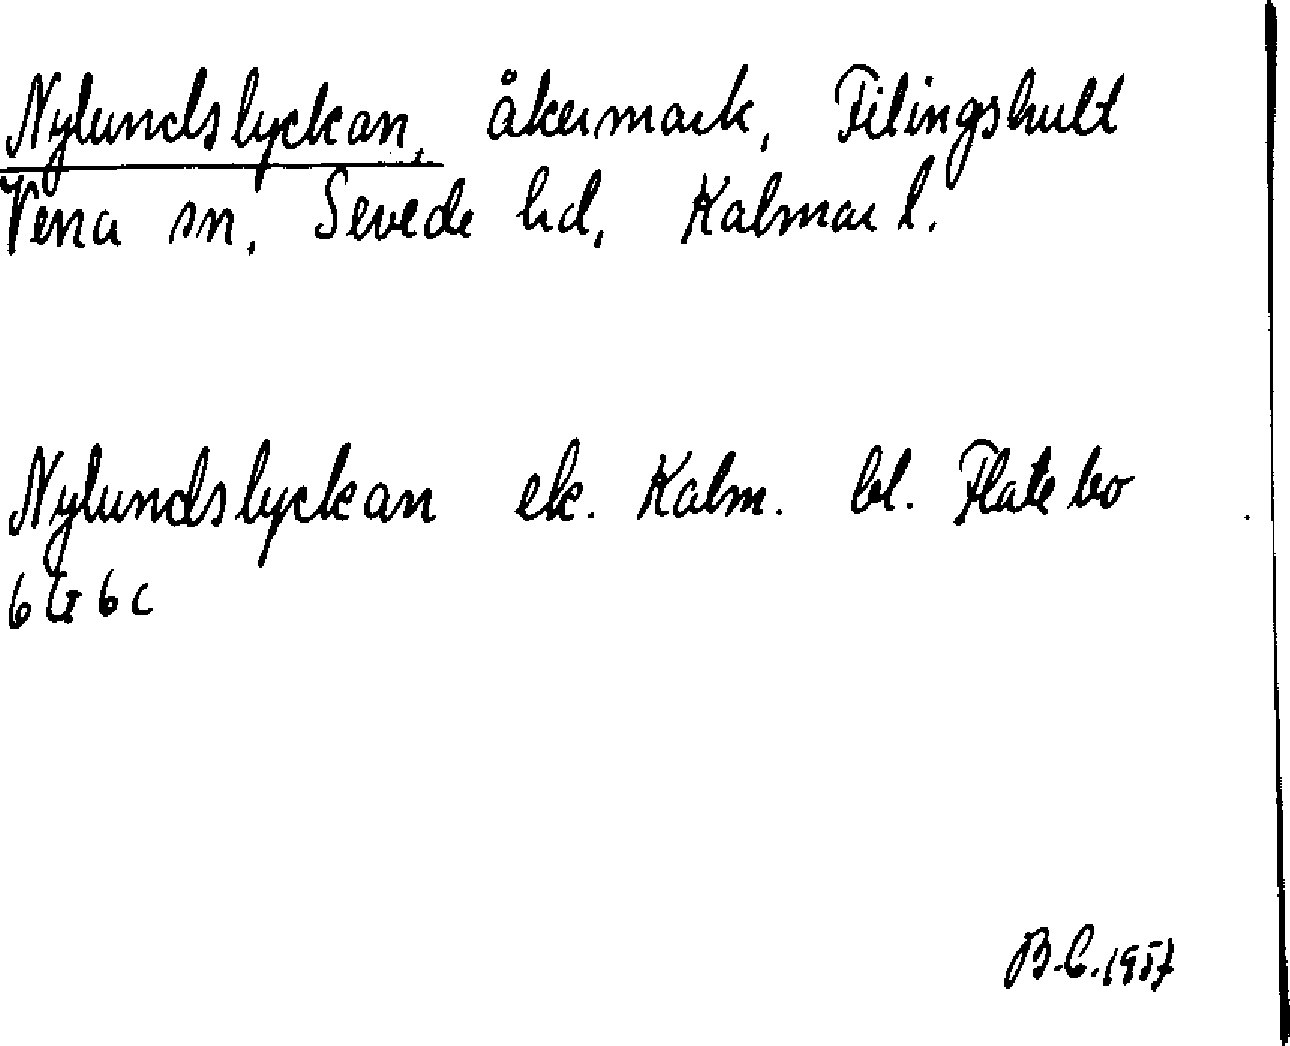 Nylundslyckan, åkermark, Filingshult
Vena sn, Sevede hd, Kalmar l.
Nylundslyckan ek. Kalm. bl. Flatebo
6 G 6 c
B.C. 1957